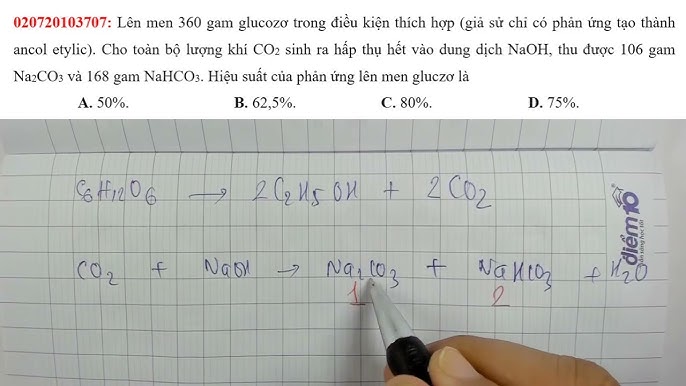 020720103707: Lên men 360 gam glucozơ trong điều kiện thích hợp (giả sử chỉ có phản ứng tạo thành
ancol etylic). Cho toàn bộ lượng khí CO₂ sinh ra hấp thụ hết vào dung dịch NaOH, thu được 106 gam
Na₂CO₃ và 168 gam NaHCO₃. Hiệu suất của phản ứng lên men gluczơ là
A. 50%. B. 62,5%. C. 80%. D. 75%.
C₆H₁₂O₆ → 2C₂H₅OH + 2CO₂
điểm10
CO₂ + NaOH → Na₂CO₃ + NaHCO₃ + H₂O
1 2